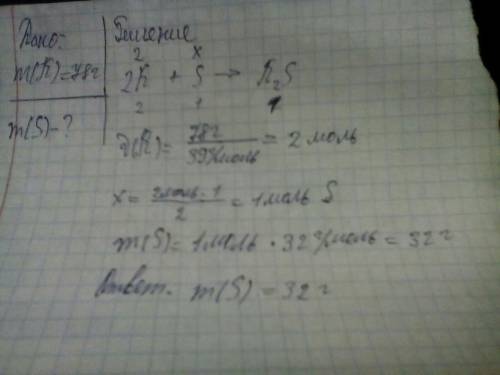 Дано:
m(K)=78г
m(S)-?
Решение
2 x
2K + S → K₂S
2 1 1
ν(K)= 78г / 39г/моль = 2 моль
x= 2моль·1 / 2 = 1 моль S
m(S)= 1моль · 32г/моль = 32 г
Ответ. m(S) = 32 г